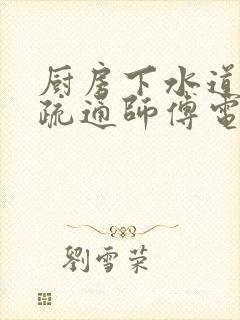 厨房下水道
疏通師傅電
劉雪荣